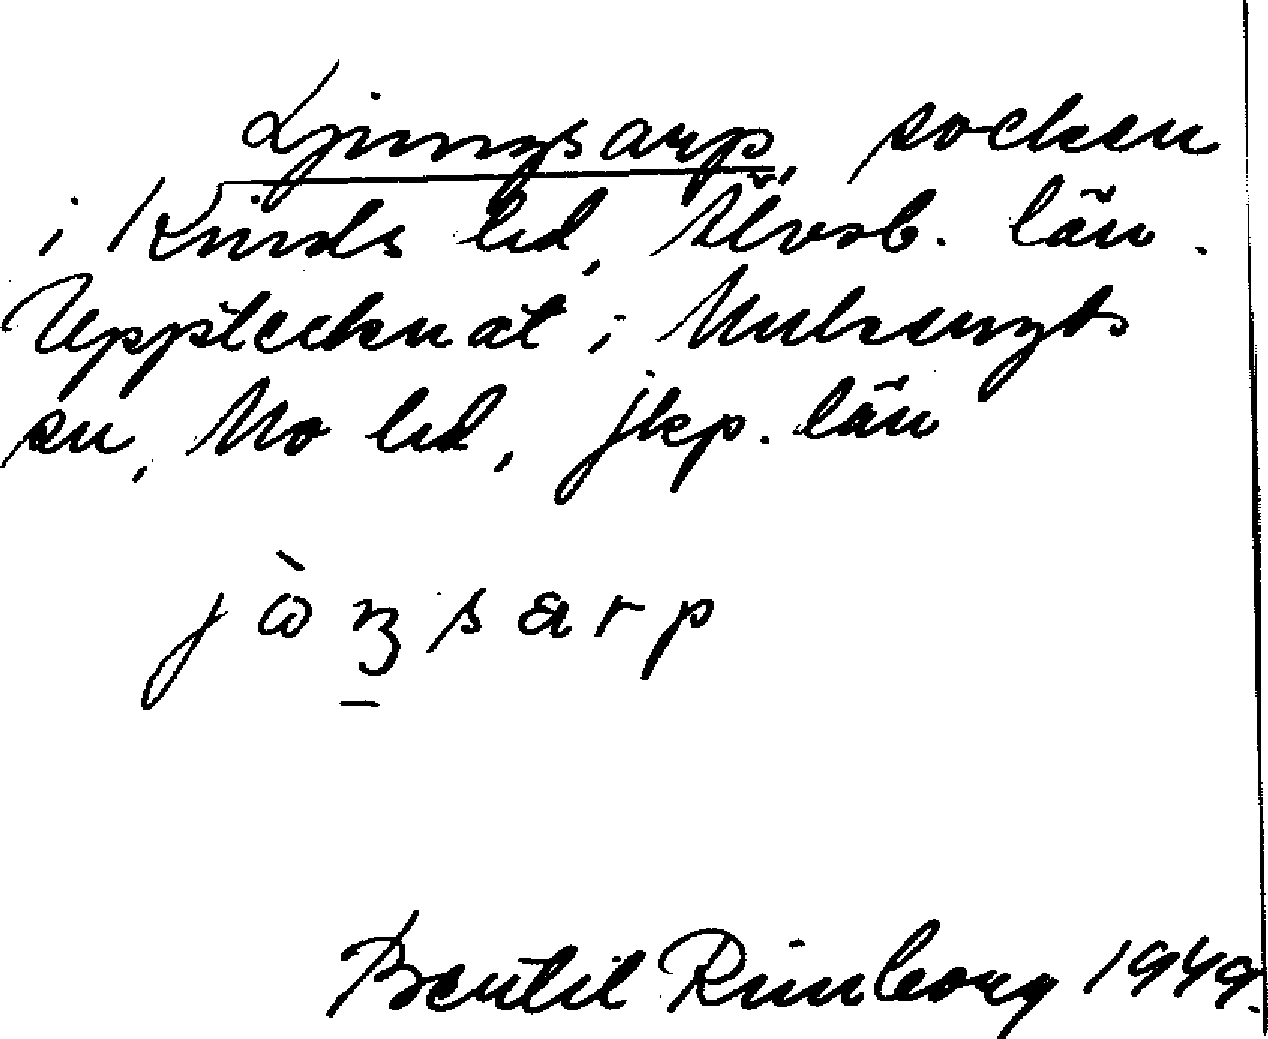 Ljungsarp, socken
i Kinds hd, Älvsb. län.
Upptecknat i Mulseryds
sn, Mo hd, Jkp. län
Bertil Rimborg 1949.